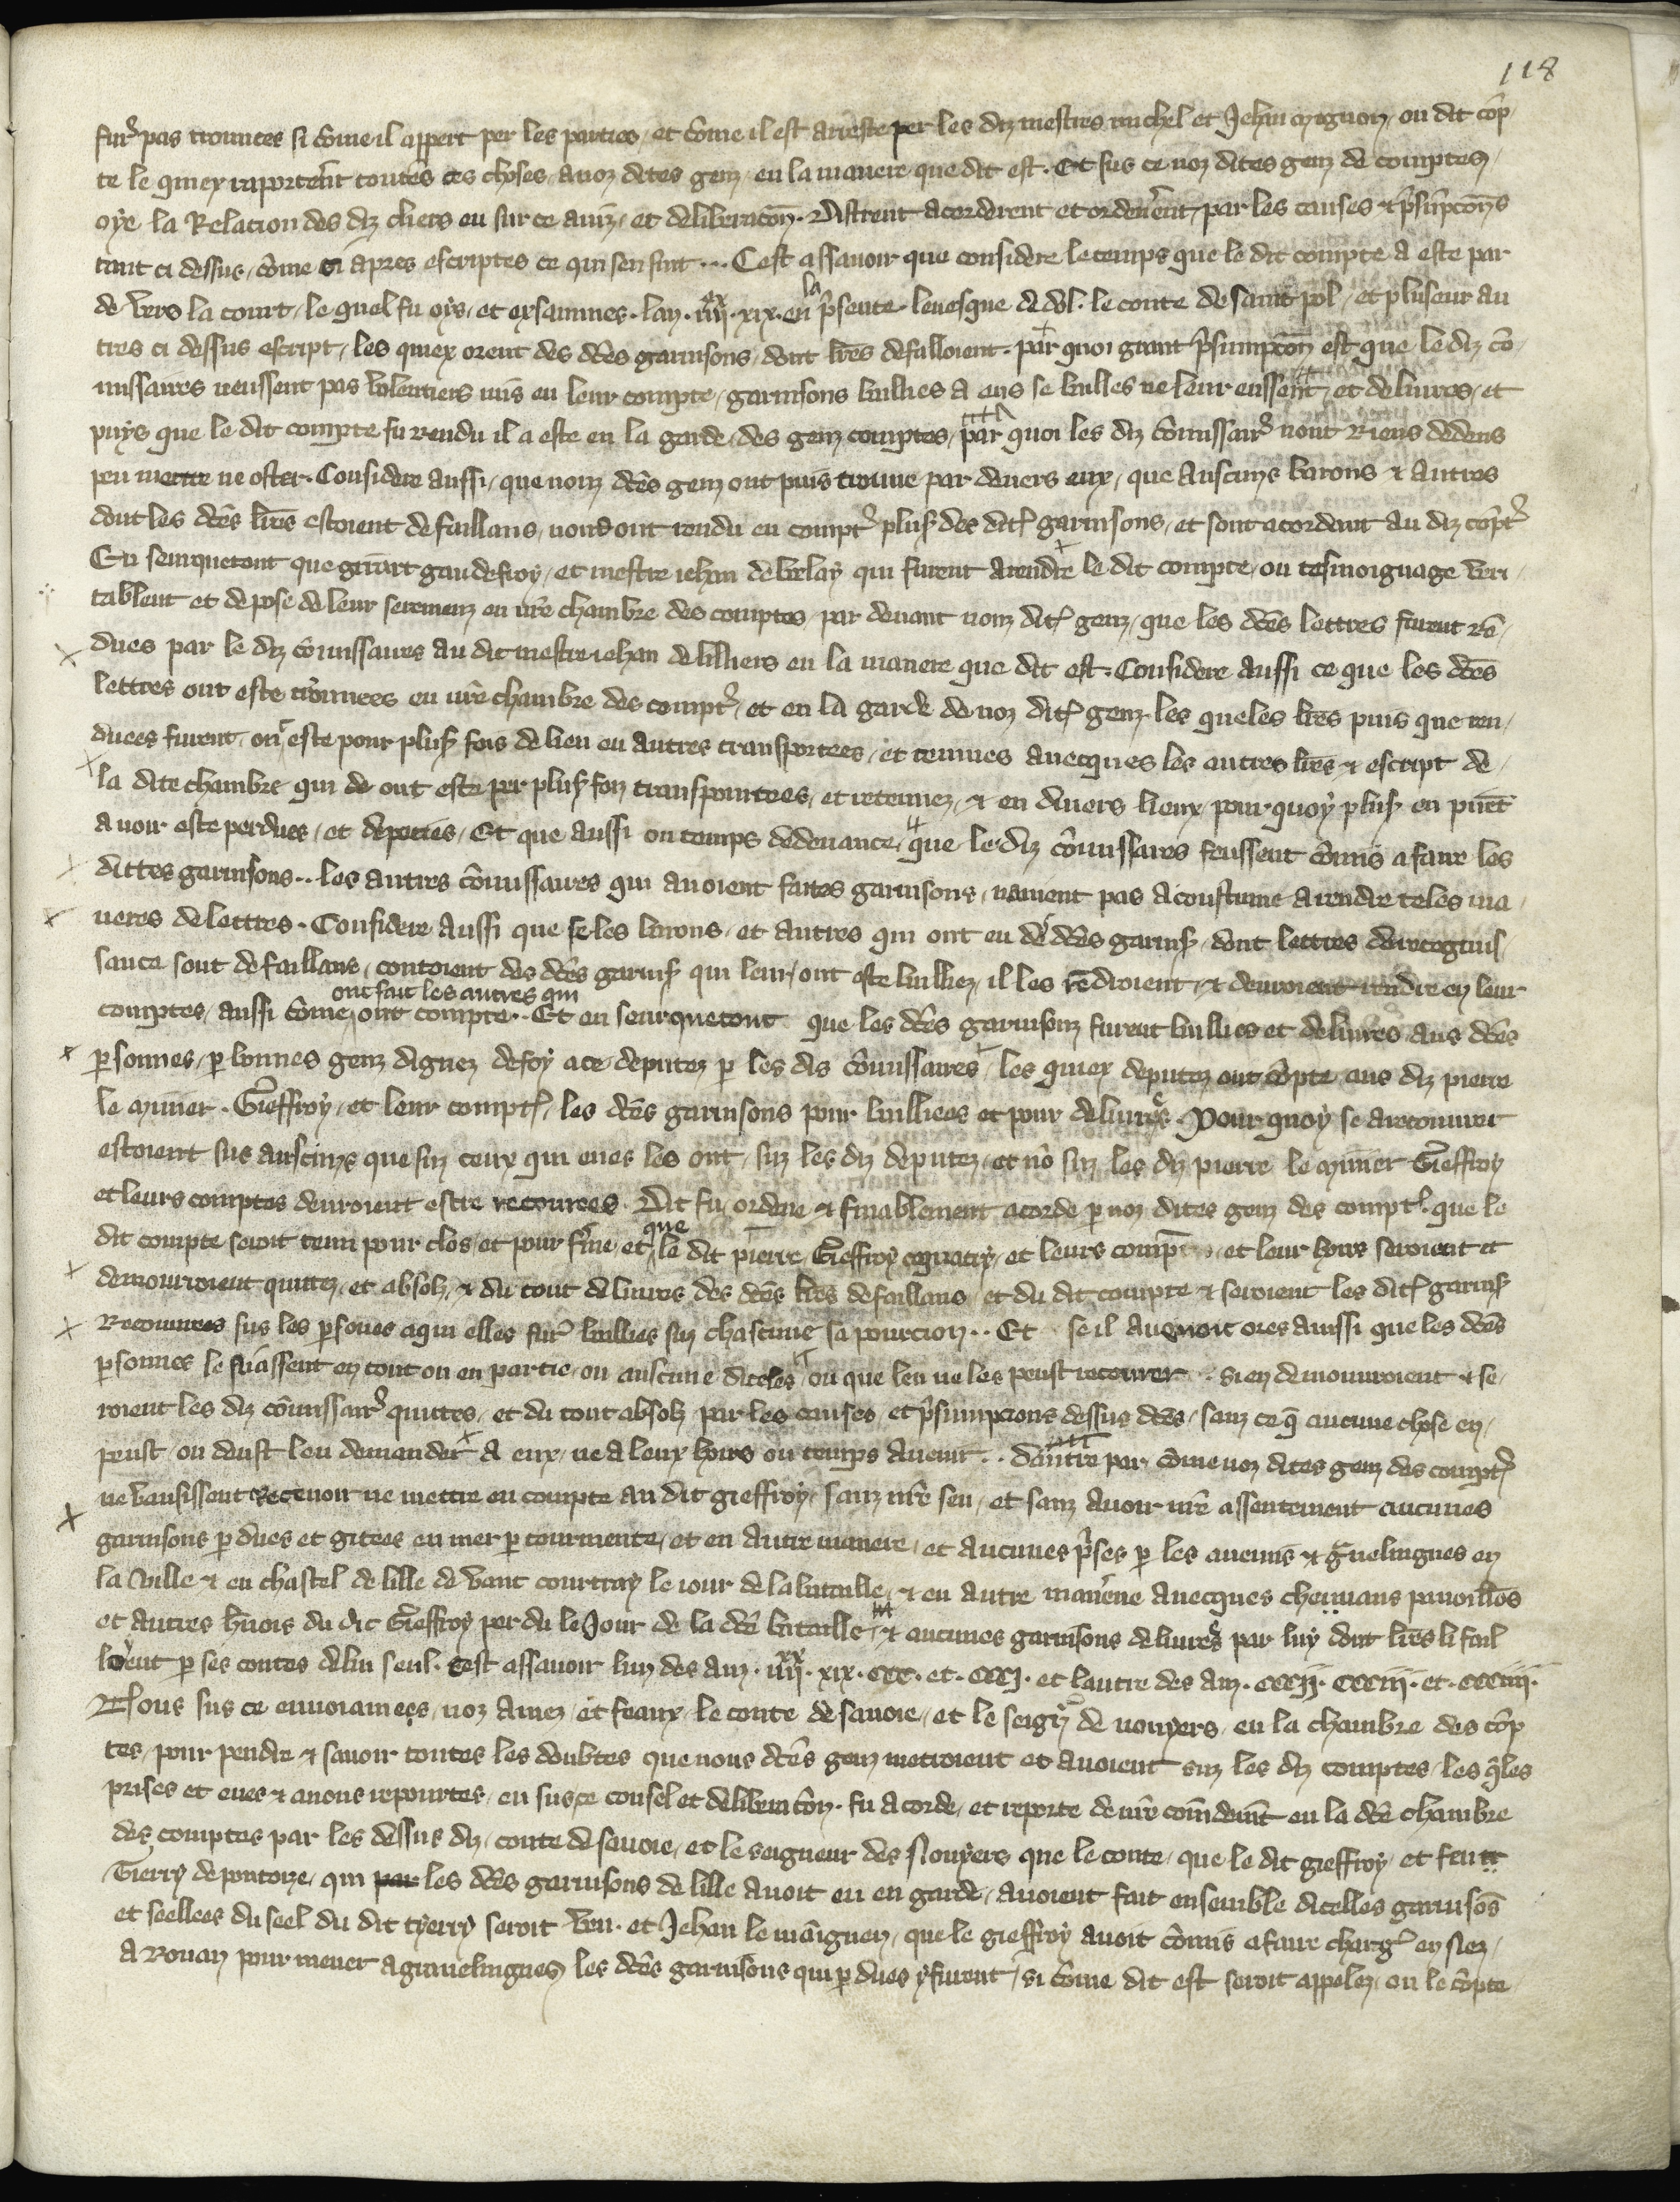 118
furᷣ pas trouuees si cōme il appert per les parties, et cōme il est arreste per les diz mestres michel et Jehan mignon, ou dit cōp
te le quiex raporterēt toutes ces choses a noz dites genz, en la maniere que dit est. Et sus ce noz dites genz de comptes,
oye la Relacion des diz clers eu sur ce auiz, et deliberacōn. distrent acorderent et ordenerent, par les causes et p̄sūpcōns
tant ci dessus, cōme ci apres escriptes ce qui sensuit... Cest assauoir que considere le temps que le dit compte a este par
de vers la court, le quel fu oys, et exsamines. lan. iiijxx. xix. en la p̄sente leuesque de dol. le conte de saint pol, et pluseur au
tres ci dessus escript, les quiex orent des dc̄es garnisons, dont lr̄es defalloient. par quoi grant p̄sumpcōn est que le diz cō
missaires neussent pas volentiers mis en leur compte, garnisons bullies a eus se bulles ne leur eussent, et deliures, et
puys que le dit compte fu rendu il a este en la garde, des genz comptes, par quoi les diz cōmissairᷣ nont Riens dedens
peu mettre ne oster. Considere aussi, que nomz dc̄es genz ont puis trouue par deuers eux, que auscuns barons et autres
dont les dc̄es lr̄es estoient defaillans, nond ont rendu en comptᷣ plusʳ des ditᷣ garnisons, et sont acordant au diz cōptᷣ
En seurquetout que girart gaudefroy, et mestre iehan de velay qui furent a rendre le dit compte, ou tesmoignage veri
tablent et depose de leur seremenz en nr̄e chambre des comptes, par deuant nomz ditᷣ genz, que les dc̄es lettres furent rē
dues par le diz cōmissaires au dit mestre iehan de lilliers en la maniere que dit est. Considere aussi ce que les dc̄es
lettres ont este trouuees en nr̄e chambre des comptᷣ, et en la garde de noz ditᷣ genz. les queles lr̄es puis que ren
duees furent, ont este pour plusʳ fois de lieu en autres transportees, et tenues auecques les autres lr̄es et escript de
la dite chambre qui de ont este per plusʳ foiz transpourtees, et retenuez, et en diuers lieux, pour quoy plusʳ en puēt
auoir este perdues, et deperies, Et que aussi ou temps dedeuance, que le diz cōmissaires feussent cōmis a faire les
dittes garnisons.. les autres cōmissaires qui auoient faites garnisons, nauient pas acoustume a rendre teles ma
neres de lettres. Considere aussi que se les barons, et autres qui ont eu de dc̄es garnisʳ, dont lettres de recognis
sance sont defaillans, contoient des dc̄es garnisʳ qui leur, ont este bulliez, il les rēdroient, et deuroient rendre en leur
comptes, aussi cōme ont fait les autres qui ont compte.. Et en seurquetout que les dc̄es garnisonz furent bullies et deliures aus dc̄es
p̱sonnes, p̱ bonnes genz dignez de foy a ce deputez p̱ les dis cōmissaires, les quiex deputez ont cōpte aus diz pierre
le mūier. Gieffroy, et leur comptᷣ, les dc̄es garnisons pour bulliees et pour deliurees. Pour quoy se a recouurer
estoient sus auscuns que suz ceux qui eues les ont, suz les diz deputez, et nō suz les diz pierre le mūier Gieffroy
et leurs comptes deuroient estre recourees. Dit fu, ordene et finablement acorde p̱ noz dites genz des comptᷣ. que le
dit compte seroit tenu pour clos, et pour fine, et que le dit pierre Gieffroy coquatriy, et leurs comp et leur hoirs seroient et
demourroient quittez, et absolz, et du tout deliures des dc̄es lr̄es defaillans, et du dit compte et seroient les ditᷣ garnisʳ
Recouurees sus les p̱sones aqui elles furᷣ bullies suz chascune sa porcion.. Et se il auenoit ores aussi que les dc̄es
p̱sonnes le niassent en tout ou en partie, ou auscune diceles, ou que len ne les peust recourer.. si en demourroient et se
roient les diz cōmissairᷣ quittes, et du tout absolz par les causes, et p̄sumpcions dessus dc̄es, sanz ce q̄ aucune chose en
peust, ou deust len demander a eux, ne a leux hoirs ou temps auenir.. dautre par, cōme noz dites genz des comptᷣ
ne vausissent receuoir ne mettre en compte au dit gieffroy, sanz nr̄e seu, et sanz auoir nr̄e assentement aucunes
garnisons p̱dues et gitees en mer p̱ tourmente, et en autre maniere, et aucunes p̄ses p̱ les anemis et guelingues en
la ville et en chastel de lille de vant courtray le iour de la bataille, et en autre maniere auecques cheuaus pauoillōs
et autres hrnois du dit Gieffroy perdu le Jour de la dc̄e bataille, et aucunes garnisons deliurees par luy dont lr̄es li fail
loyēt p̱ ses contes de lui seul. Cest assauoir lun des anz. iiijxx. xix. ccc. et. cccj. et lautre des anz. cccij. ccciij. et. ccciiij.
Nous sus ce enuoiamees, noz amez, et feaux, le conte de sauoie, et le seigrᷣ de noyers, en la chambre des cōp
tes, pour pendre et sauoir toutes les doubtes que nous dc̄es genz metroient et auoient suz les diz comptes, les q̄les
prises et eues et a nous repourtes, eu sus ce consel et deliberacōn. fu acorde, et reporte de nr̄e cōmdemēt en la dc̄e chambre
des comptes par les dessus diz, conte de sauoie, et le seigneur des Noyers que le conte, que le dit gieffroy, et feu
Tierry de pontoyze, qui les dc̄es garnisons de lille auoit eu en garde, auoient fait ensemble dicelles garnisōs
et seellees du seel du dit tyerry seroit veu. et Jehan le māignen, que le gieffroy auoit cōmis a faire chargᷣ en nez,
a Rouan pour mener a grauelingues, les dc̄es garnisons qui p̱dues y furent, si cōme dit est seroit appelez, en le cōpte